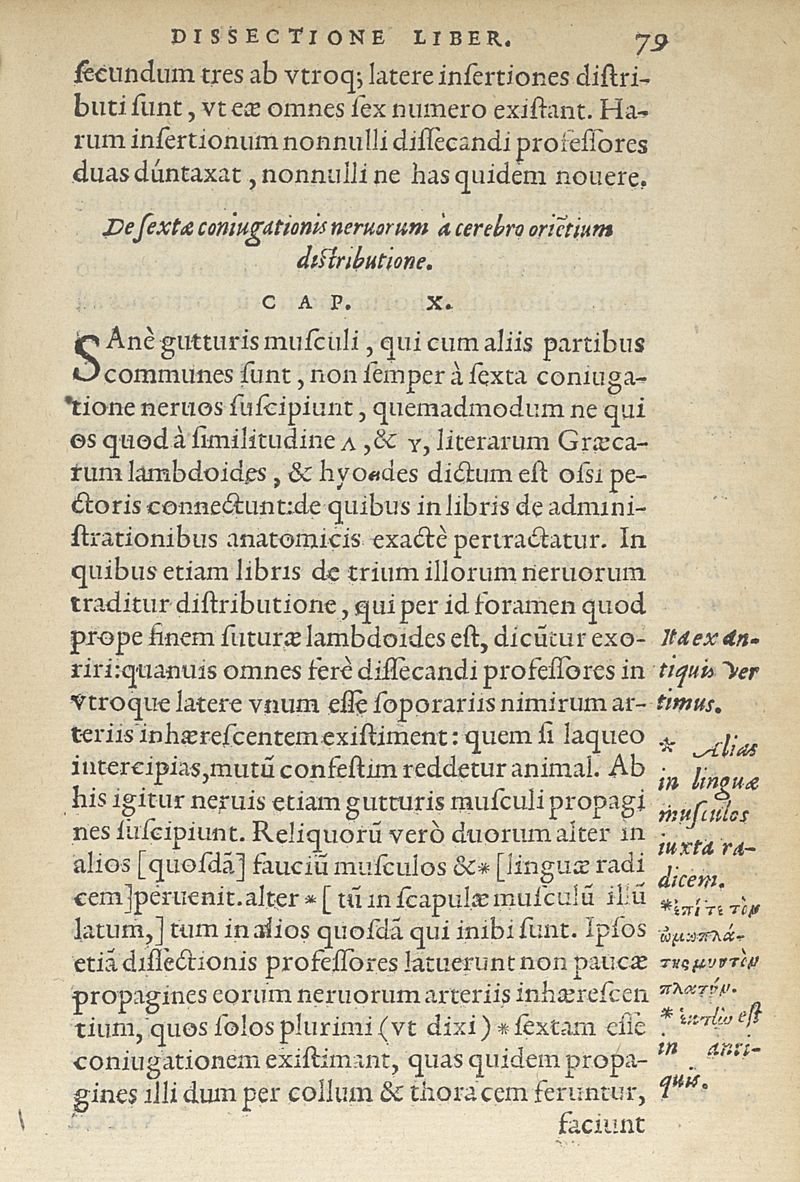 DISSECTIONE LIBER. 79
ſecundum tres ab vtroq; latere inſertiones diſtri-
buti ſunt, vt eæ omnes ſex numero exiſtant. Ha-
rum inſertionum nonnulli diſſecandi profeſſores
duas dúntaxat, nonnulli ne has quidem nouere.
De ſexta coniugationis neruorum à cerebro oriẽtium
diſtributione.
CAP. X.
SAnè gutturis muſculi, qui cum aliis partibus
communes ſunt, non ſemper à ſexta coniuga-
tione neruos ſuſcipiunt, quemadmodum ne qui
os quod à ſimilitudine Λ, & Υ, literarum Græca-
rum lambdoides, & hyoides dictum eſt oſſi pe-
ctoris connectunt: de quibus in libris de admini-
ſtrationibus anatomicis exactè pertractatur. In
quibus etiam libris de trium illorum neruorum
traditur diſtributione, qui per id foramen quod
prope finem ſuturæ lambdoides eſt, dicũtur exo-
riri: quanuis omnes ferè diſſecandi profeſſores in
vtroque latere vnum eſſe ſoporariis nimirum ar-
teriis inhæreſcentem exiſtiment: quem ſi laqueo
intercipias, mutũ confeſtim reddetur animal. Ab
his igitur neruis etiam gutturis muſculi propagi
nes ſuſcipiunt. Reliquorũ verò duorum alter in
alios [quoſdã] fauciũ muſculos &* [linguæ radi
cem] peruenit. alter * [tũ in ſcapulæ muſculũ illũ
latum,] tum in alios quoſdã qui inibi ſunt. Ipſos
etiã diſſectionis profeſſores latuerunt non paucæ
propagines eorum neruorum arteriis inhæreſcen
tium, quos ſolos plurimi (vt dixi) * ſextam eſſe
coniugationem exiſtimant, quas quidem propa-
gines illi dum per collum & thoracem feruntur,
faciunt
Ita ex an-
tiquis ver
timus.
* Alias
in linguæ
muſculos
iuxta ra-
dicem.
*ἐπί τε τὸν
ὠμοπλά-
της μυν τὸν
πλατύν.
* ἕκτlω eſt
in anti-
quis.